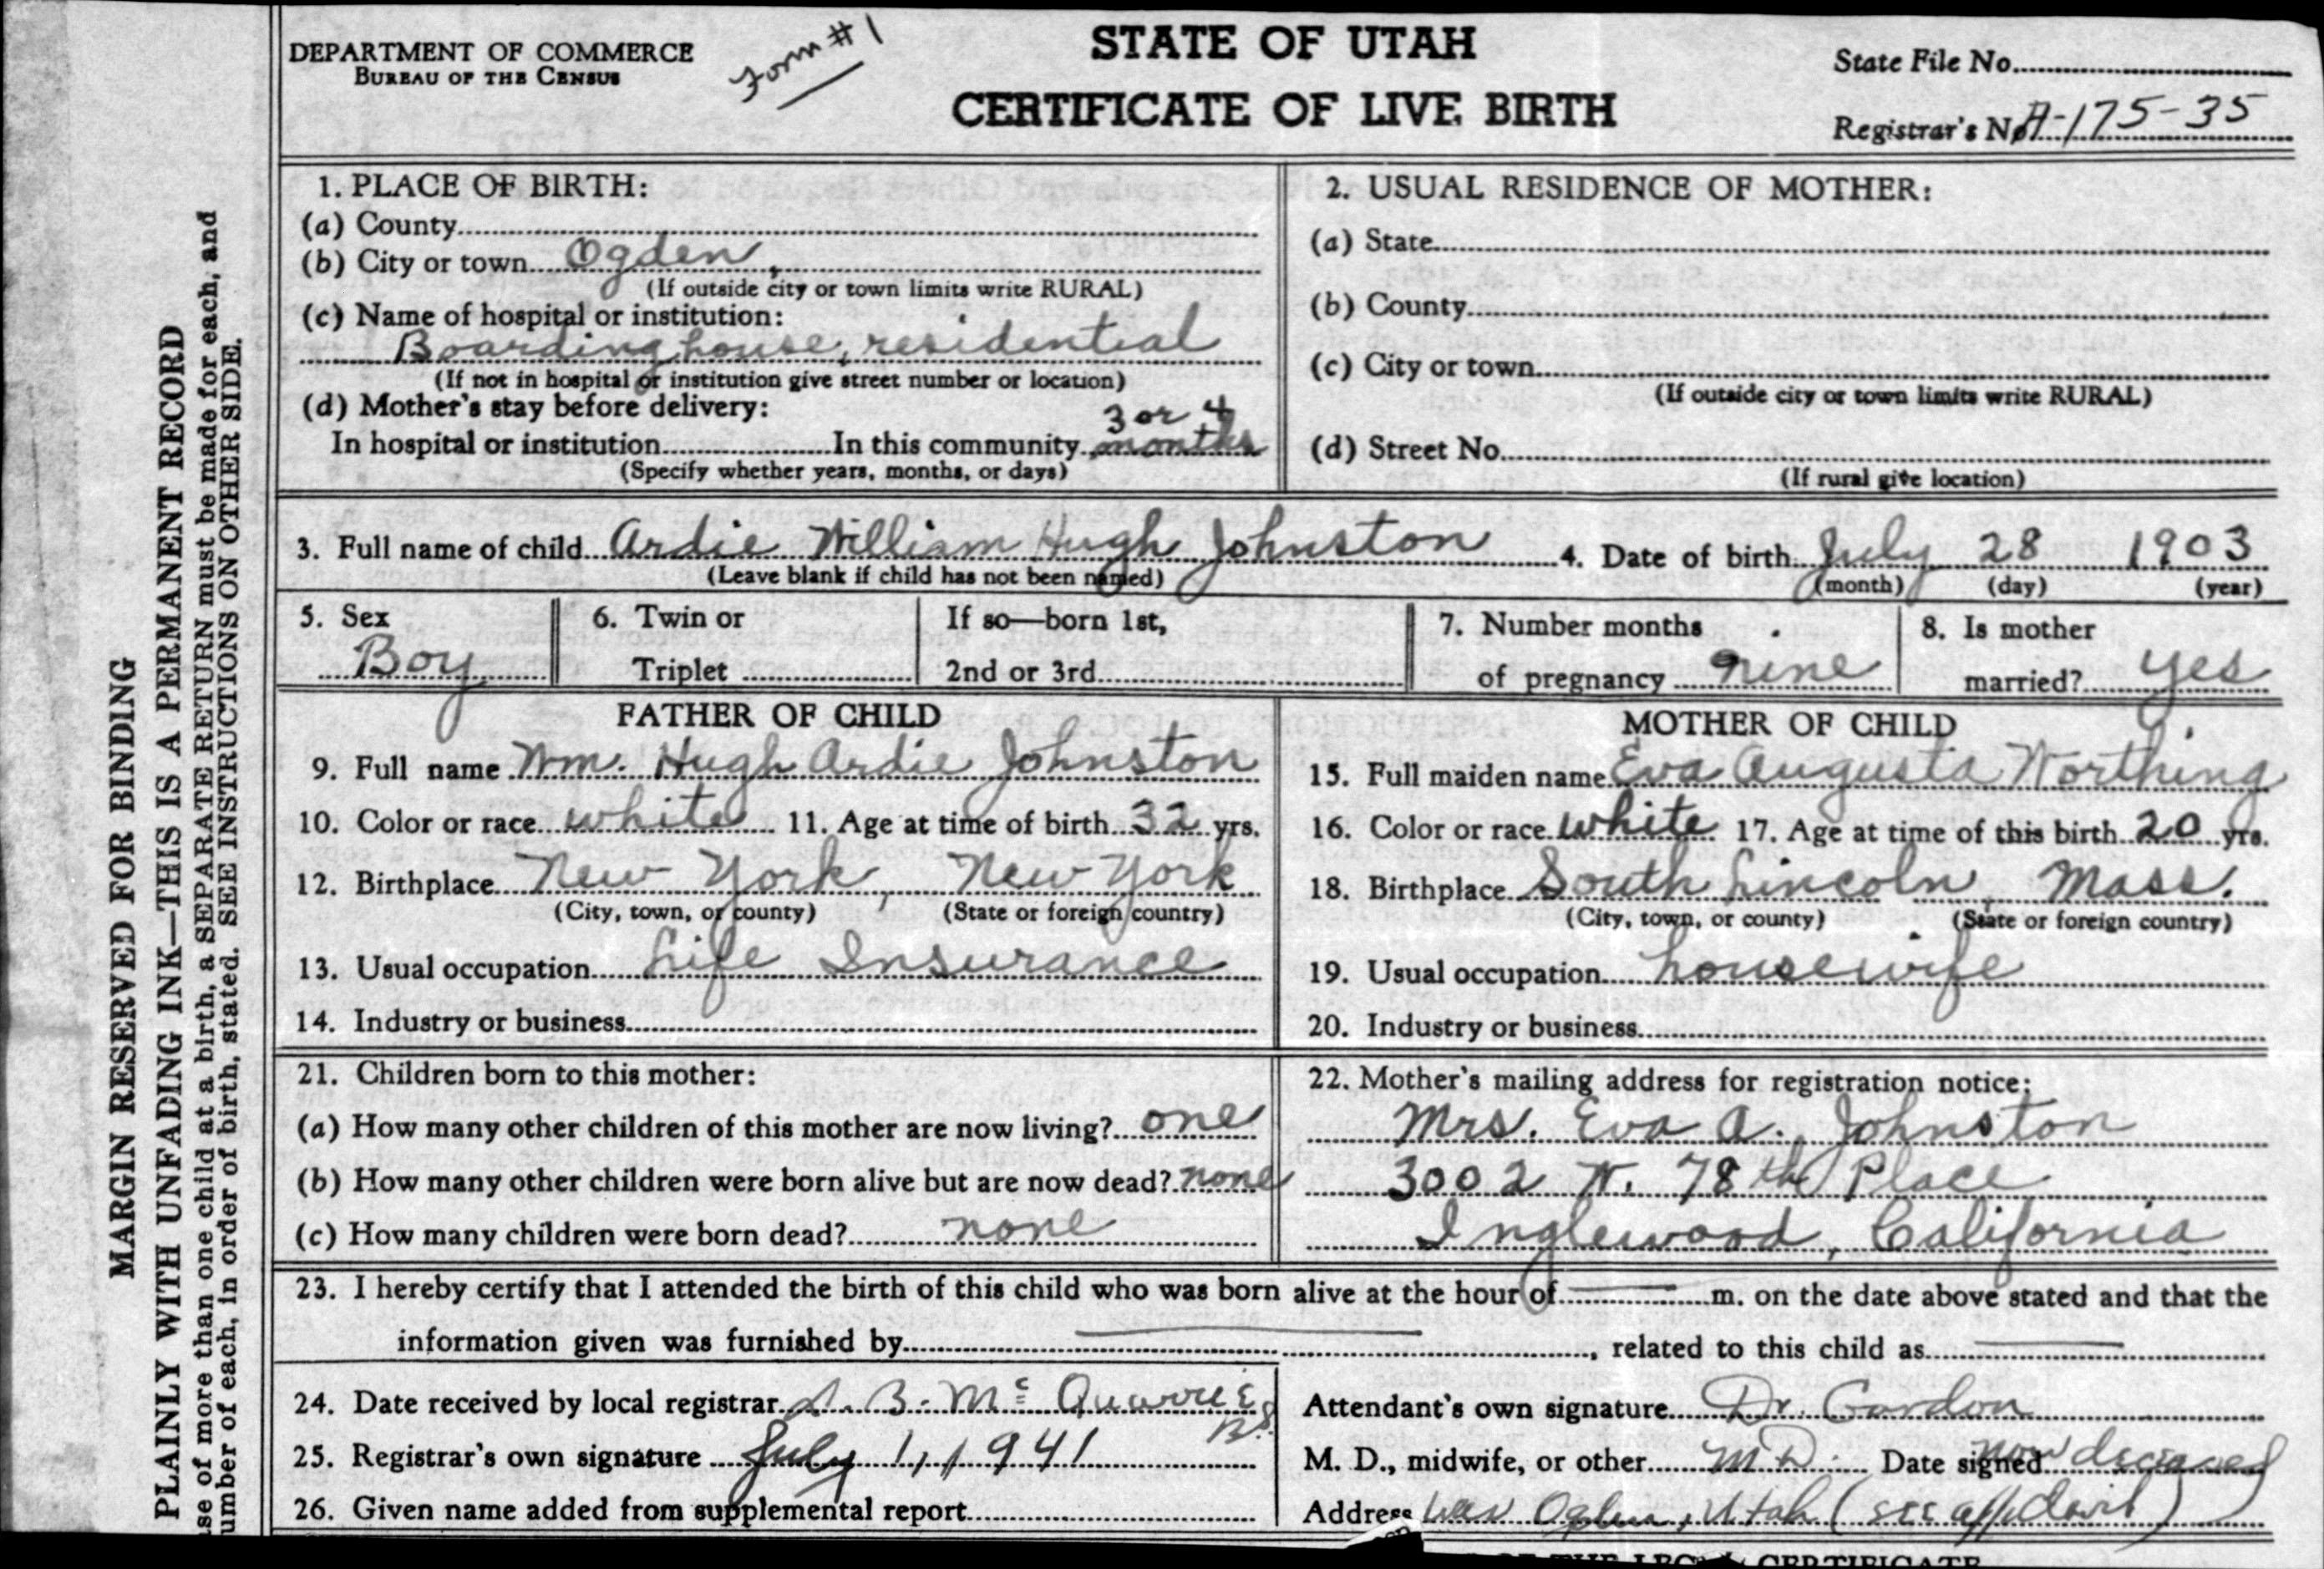 DEPARTMENT OF COMMERCE
BUREAU OF THE CENSUS
Form # 1
STATE OF UTAH
CERTIFICATE OF LIVE BIRTH
State File No.
Registrar's No. A-175-35
MARGIN RESERVED FOR BINDING
PLAINLY WITH UNFADING INK—THIS IS A PERMANENT RECORD
se of more than one child at a birth, a SEPARATE RETURN must be made for each, and
umber of each, in order of birth, stated. SEE INSTRUCTIONS ON OTHER SIDE.
1. PLACE OF BIRTH:
(a) County
(b) City or town Ogden,
(If outside city or town limits write RURAL)
(c) Name of hospital or institution:
Boarding house, residential
(If not in hospital or institution give street number or location)
(d) Mother's stay before delivery:
In hospital or institution In this community 3 or 4 months
(Specify whether years, months, or days)
2. USUAL RESIDENCE OF MOTHER:
(a) State
(b) County
(c) City or town
(If outside city or town limits write RURAL)
(d) Street No.
(If rural give location)
3. Full name of child Ardie William Hugh Johnston 4. Date of birth July 28 1903
(Leave blank if child has not been named) (month) (day) (year)
5. Sex Boy
6. Twin or Triplet
If so—born 1st, 2nd or 3rd
7. Number months of pregnancy nine
8. Is mother married? yes
FATHER OF CHILD
9. Full name Wm. Hugh Ardie Johnston
10. Color or race white 11. Age at time of birth 32 yrs.
12. Birthplace New York, New York
(City, town, or county) (State or foreign country)
13. Usual occupation Life Insurance
14. Industry or business
MOTHER OF CHILD
15. Full maiden name Eva Augusta Worthing
16. Color or race white 17. Age at time of this birth 20 yrs.
18. Birthplace South Lincoln, Mass.
(City, town, or county) (State or foreign country)
19. Usual occupation housewife
20. Industry or business
21. Children born to this mother:
(a) How many other children of this mother are now living? one
(b) How many other children were born alive but are now dead? none
(c) How many children were born dead? none
22. Mother's mailing address for registration notice:
Mrs. Eva A. Johnston
3002 W. 78th Place
Inglewood, California
23. I hereby certify that I attended the birth of this child who was born alive at the hour of m. on the date above stated and that the
information given was furnished by , related to this child as
24. Date received by local registrar B. Mc Quarrie
25. Registrar's own signature July 1, 1941
26. Given name added from supplemental report
Attendant's own signature Dr. Gordon
M. D., midwife, or other M D. Date signed now deceased
Address was Ogden, Utah (see affidavit)
OF THE LEGAL CERTIFICATE